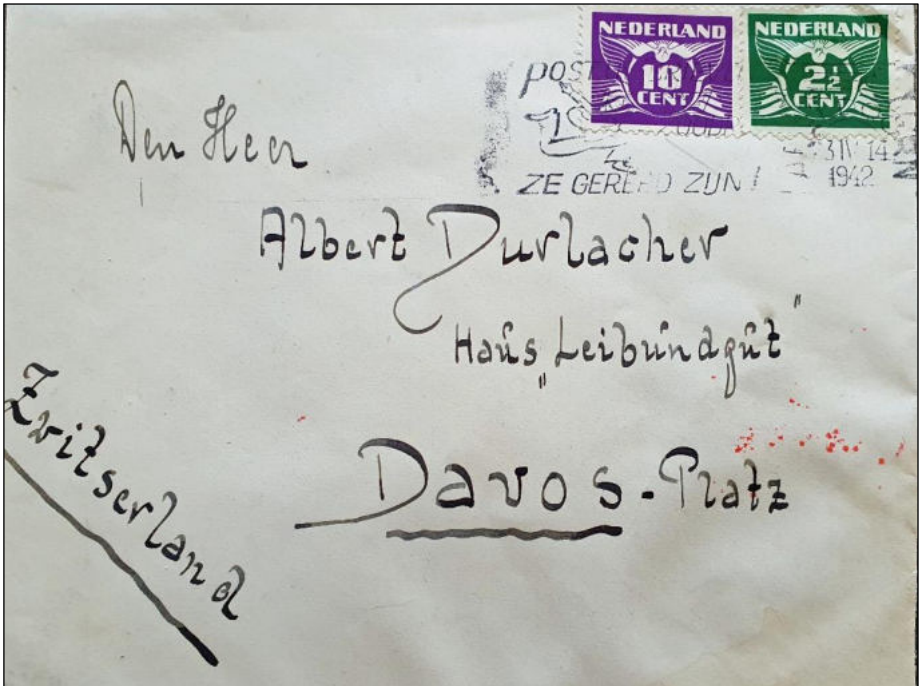 NEDERLAND
10
CENT
NEDERLAND
2½
CENT
POST
ZE GEREED ZIJN!
3 IV 14
1942
Den Heer
Albert Durlacher
Haus „Leibundgut"
Davos-Platz
Zwitserland